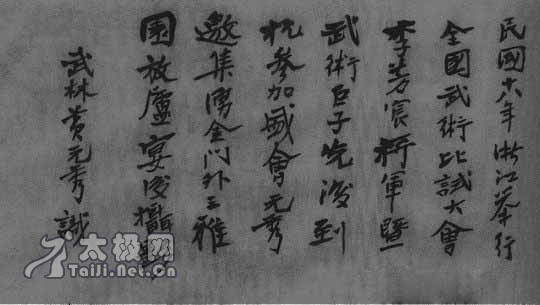 民國十八年浙江舉行
全國武術比試大會
李芳宸將軍暨
武術巨子先後到
杭參加盛會元秀
邀集湧金門外三雅
園放廬宴後攝
武林黃元秀識
太极网
TaiJi.Net.Cn